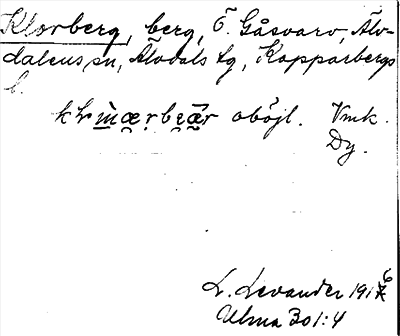 Klorberg, berg, Ö. Gåsvarv, Älv-
dalens sn, Älvdals tg, Kopparbergs
l.
oböjl. Vmk.
Dy.
L. Levander 1916
Ulma 301:4